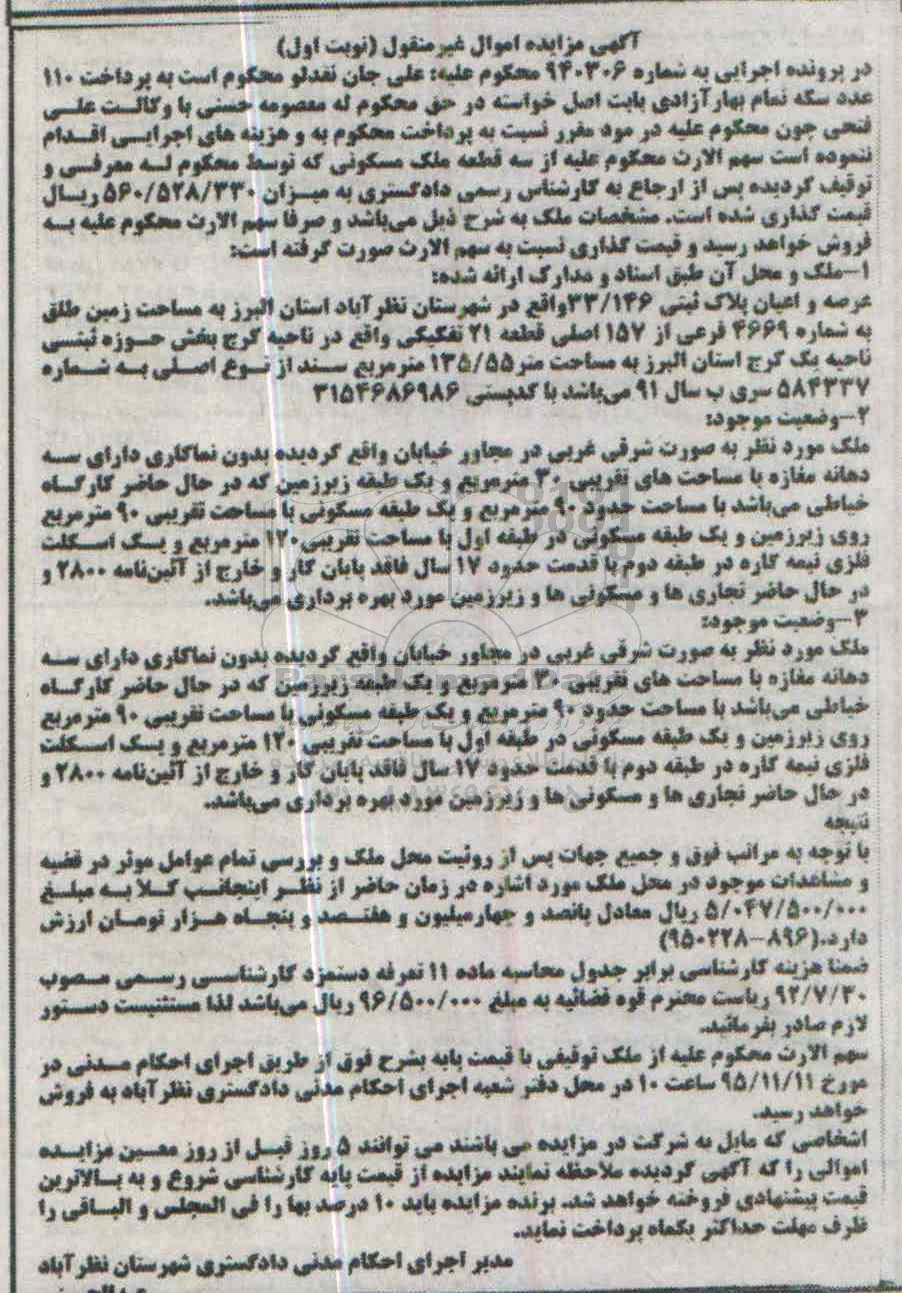 آگهی مزایده اموال غیرمنقول (نوبت اول)
در پرونده اجرایی به شماره ۹۴۰۳۰۶ محکوم علیه: علی جان نقدلو محکوم است به پرداخت ۱۱۰
عدد سکه تمام بهار آزادی بابت اصل خواسته در حق محکوم له معصومه حسنی با وکالت علی
فتحی چون محکوم علیه در مود مقرر نسبت به پرداخت محکوم به و هزینه های اجرایی اقدام
ننموده است سهم الارث محکوم علیه از سه قطعه ملک مسکونی که توسط محکوم له معرفی و
توقیف گردیده پس از ارجاع به کارشناس رسمی دادگستری به میزان ۵۶۰/۵۲۸/۳۳۰ ریال
قیمت گذاری شده است. مشخصات ملک به شرح ذیل می‌باشد و صرفا سهم الارث محکوم علیه به
فروش خواهد رسید و قیمت گذاری نسبت به سهم الارث صورت گرفته است:
۱-ملک و محل آن طبق اسناد و مدارک ارائه شده:
عرصه و اعیان پلاک ثبتی ۳۳/۱۴۶واقع در شهرستان نظرآباد استان البرز به مساحت زمین طلق
به شماره ۴۶۶۹ فرعی از ۱۵۷ اصلی قطعه ۲۱ تفکیکی واقع در ناحیه کرج بخش حوزه ثبتی
ناحیه یک کرج استان البرز به مساحت متر ۱۳۵/۵۵ مترمربع سند از نوع اصلی به شماره
۵۸۴۳۳۷ سری ب سال ۹۱ می‌باشد با کدپستی ۳۱۵۴۶۸۶۹۸۶
۲-وضعیت موجود:
ملک مورد نظر به صورت شرقی غربی در مجاور خیابان واقع گردیده بدون نماکاری دارای سه
دهانه مغازه با مساحت های تقریبی ۳۰ مترمربع و یک طبقه زیرزمین که در حال حاضر کارگاه
خیاطی می‌باشد با مساحت حدود ۹۰ مترمربع و یک طبقه مسکونی با مساحت تقریبی ۹۰ مترمربع
روی زیرزمین و یک طبقه مسکونی در طبقه اول با مساحت تقریبی ۱۲۰ مترمربع و یک اسکلت
فلزی نیمه کاره در طبقه دوم با قدمت حدود ۱۷ سال فاقد پایان کار و خارج از آئین‌نامه ۲۸۰۰ و
در حال حاضر تجاری ها و مسکونی ها و زیرزمین مورد بهره برداری می‌باشد.
۳-وضعیت موجود:
ملک مورد نظر به صورت شرقی غربی در مجاور خیابان واقع گردیده بدون نماکاری دارای سه
دهانه مغازه با مساحت های تقریبی ۳۰ مترمربع و یک طبقه زیرزمین که در حال حاضر کارگاه
خیاطی می‌باشد با مساحت حدود ۹۰ مترمربع و یک طبقه مسکونی با مساحت تقریبی ۹۰ مترمربع
روی زیرزمین و یک طبقه مسکونی در طبقه اول با مساحت تقریبی ۱۲۰ مترمربع و یک اسکلت
فلزی نیمه کاره در طبقه دوم با قدمت حدود ۱۷ سال فاقد پایان کار و خارج از آئین‌نامه ۲۸۰۰ و
در حال حاضر تجاری ها و مسکونی ها و زیرزمین مورد بهره برداری می‌باشد.
نتیجه
با توجه به مراتب فوق و جمیع جهات پس از روئیت محل ملک و بررسی تمام عوامل موثر در قضیه
و مشاهدات موجود در محل ملک مورد اشاره در زمان حاضر از نظر اینجانب کلا به مبلغ
۵/۰۴۷/۵۰۰/۰۰۰ ریال معادل پانصد و چهارمیلیون و هفتصد و پنجاه هزار تومان ارزش
دارد.(۸۹۶-۹۵۰۲۲۸)
ضمنا هزینه کارشناسی برابر جدول محاسبه ماده ۱۱ تعرفه دستمزد کارشناسی رسمی مصوب
۹۲/۷/۳۰ ریاست محترم قوه قضائیه به مبلغ ۹۶/۵۰۰/۰۰۰ ریال می‌باشد لذا مستثنیست دستور
لازم صادر بفرمائید.
سهم الارث محکوم علیه از ملک توقیفی با قیمت پایه بشرح فوق از طریق اجرای احکام مدنی در
مورخ ۹۵/۱۱/۱۱ ساعت ۱۰ در محل دفتر شعبه اجرای احکام مدنی دادگستری نظرآباد به فروش
خواهد رسید.
اشخاصی که مایل به شرکت در مزایده می باشند می توانند ۵ روز قبل از روز معین مزایده
اموالی را که آگهی گردیده ملاحظه نمایند مزایده از قیمت پایه کارشناسی شروع و به بالاترین
قیمت پیشنهادی فروخته خواهد شد. برنده مزایده باید ۱۰ درصد بها را فی المجلس و الباقی را
ظرف مهلت حداکثر یکماه پرداخت نماید.
مدیر اجرای احکام مدنی دادگستری شهرستان نظرآباد